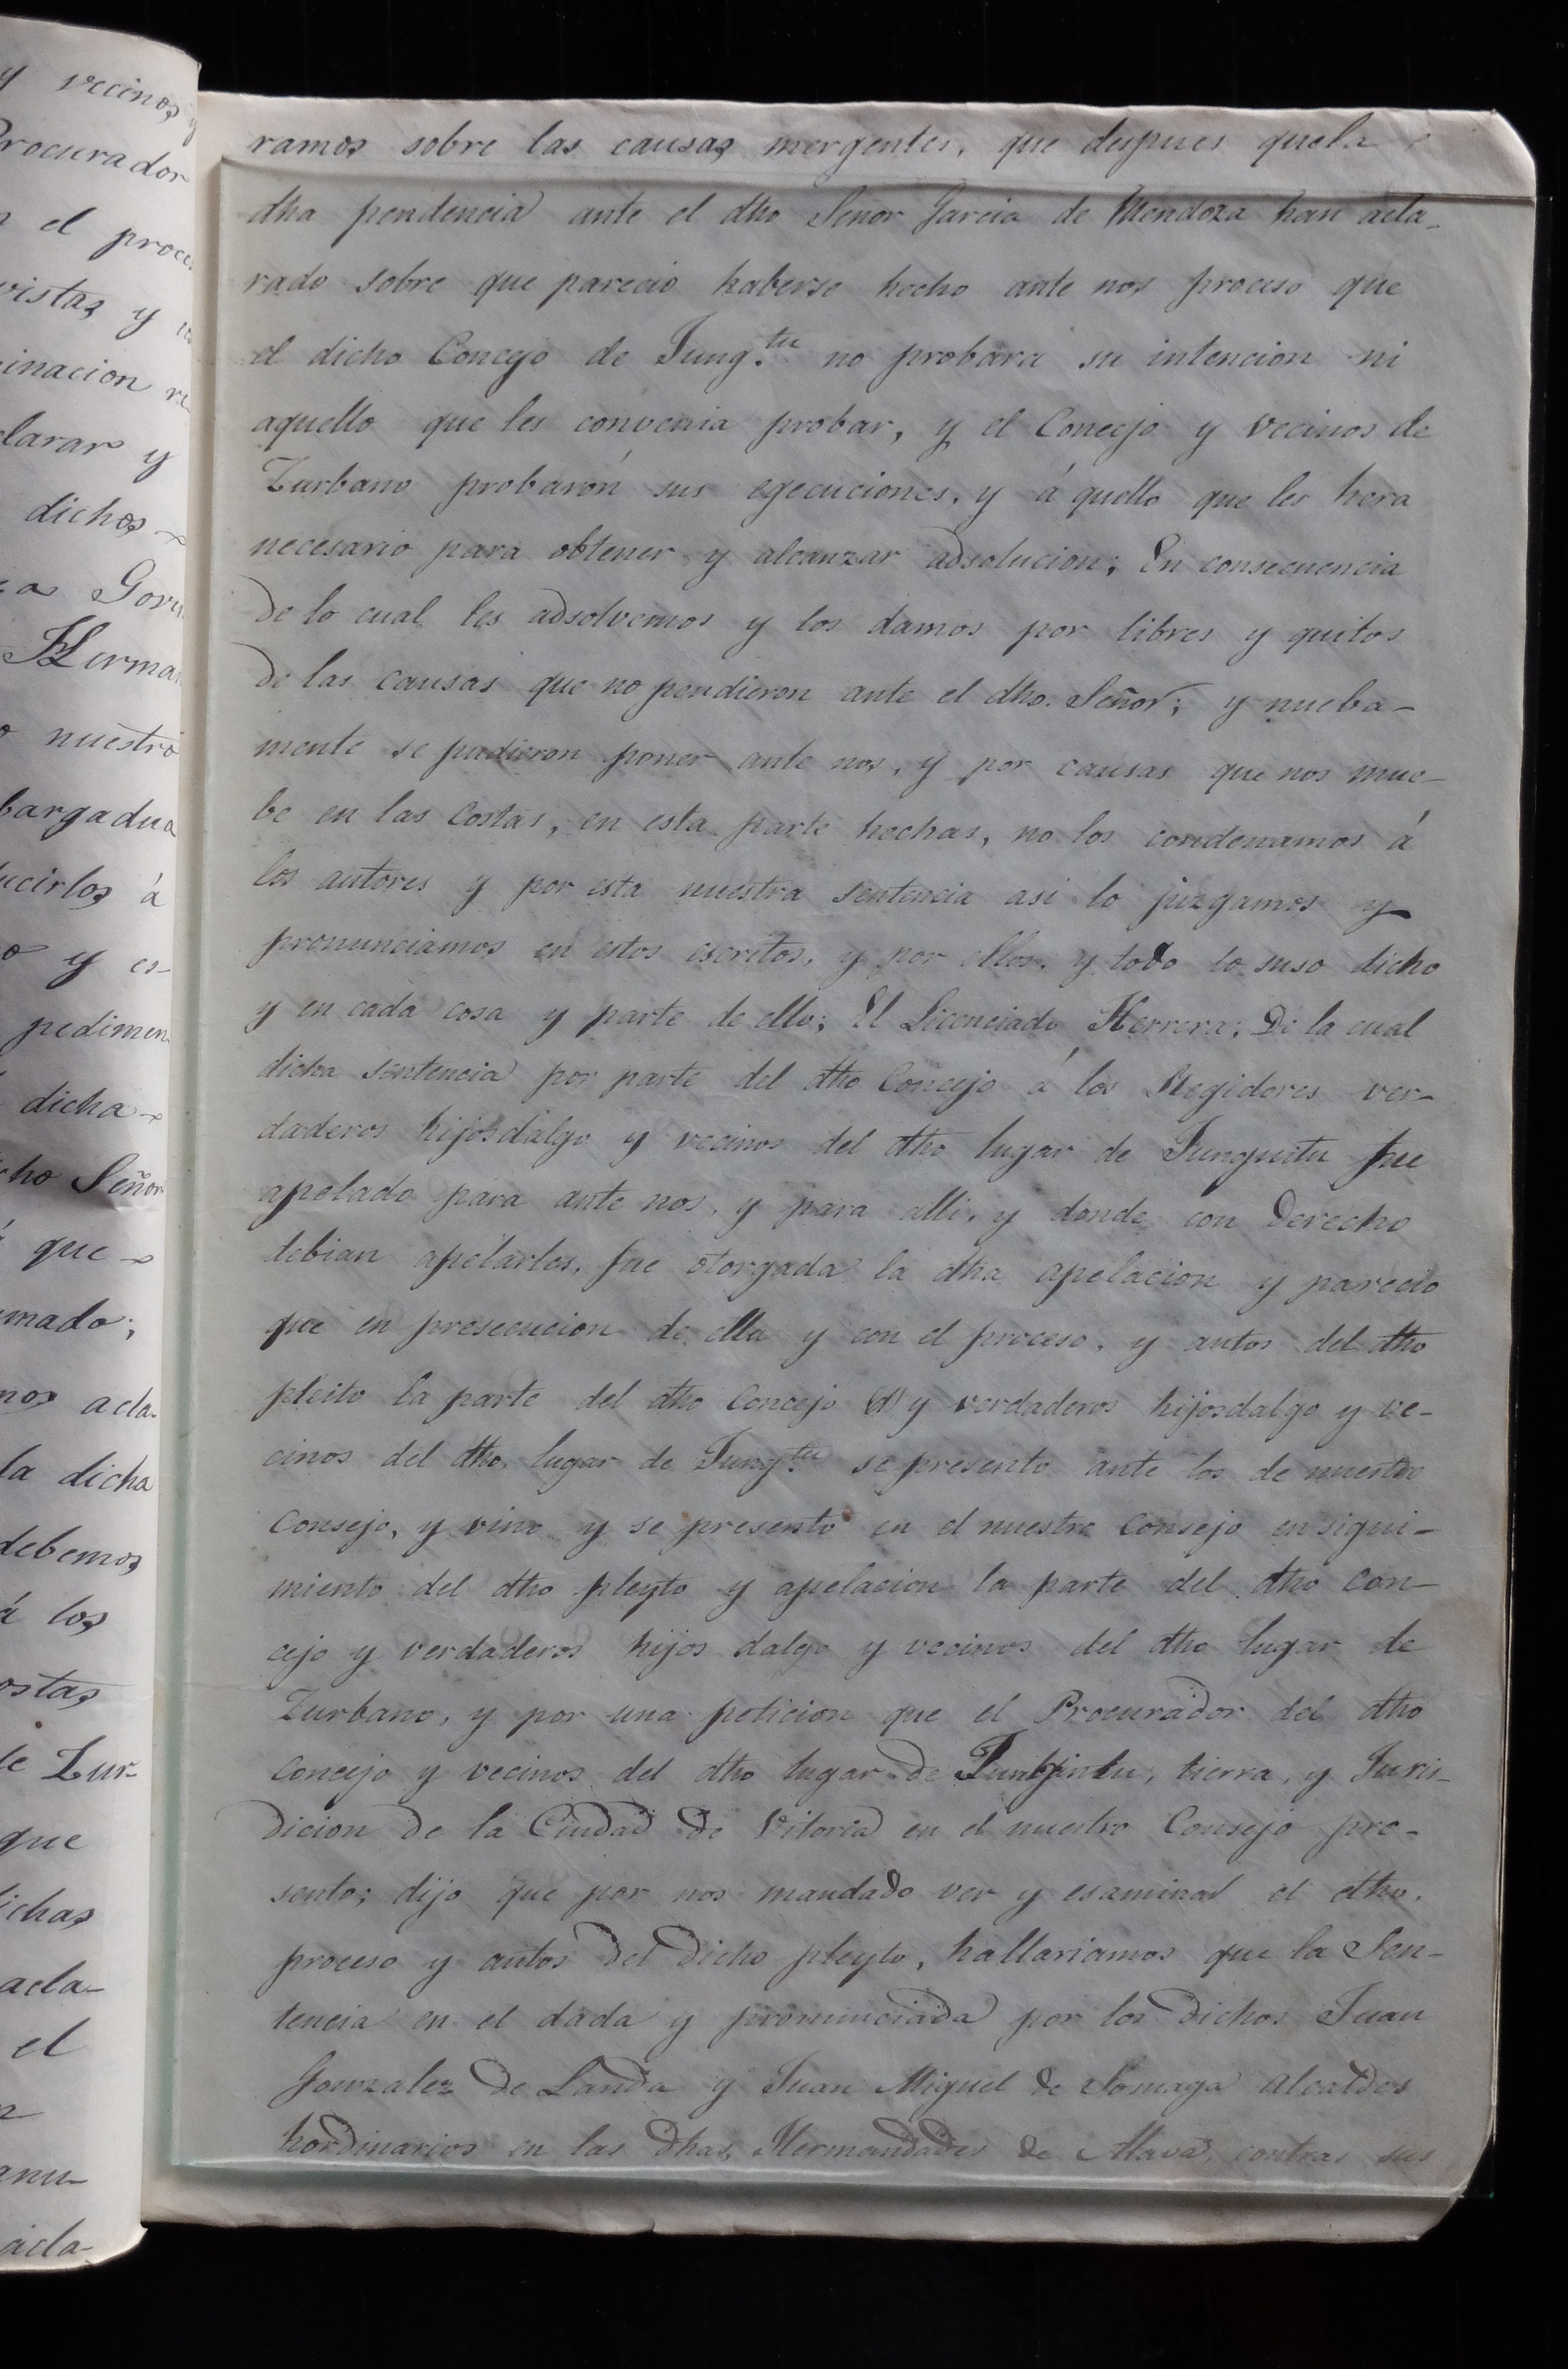 y vecinos y
Procurador
n el proce
vistas y
inacion re
clarar y
dichos
Gov
Herman
o nuestro
bargadua
ucirlos á
o y es-
pedimen
dicha
cho Señor
que
mado;
nos acla-
la dicha
debemos
á los
ostas
de Zur-
que
ichas
acla-
el
anu-
acla-
ramos sobre las causas mergentes, que despues quela
dha pendencia ante el dho Señor Garcia de Mendoza han acla-
rado sobre que parecio haberse hecho ante nos proceso que
el dicho Concejo de Jung.tu no probara su intencion ni
aquello que les convenia probar, y el Concejo y vecinos de
Zurbano probarón sus egecuciones, y á quello que les hera
necesario para obtener y alcanzar adsolucion; En consecuencia
de lo cual les adsolvemos y los damos por libres y quitos
de las causas que no pendieron ante el dho. Señor; y nueba-
mente se pudieron poner ante nos, y por causas que nos mue-
be en las costas, en esta parte hechas, no los condenamos á
los autores y por esta nuestra sentencia asi lo juzgamos y
pronunciamos en estos escritos, y por ellos, y todo lo suso dicho
y en cada cosa y parte de ello; El Licenciado Herrera; De la cual
dicha sentencia por parte del dho Concejo á los Regidores ver-
daderos hijosdalgo y vecinos del dho lugar de Junguitu fue
apelado para ante nos, y para alli, y donde con Derecho
debian apelarles, fue otorgada la dha apelacion y parecio
que en presecucion de ella y con el proceso, y autos del dho
pleito la parte del dho Concejo (d) y verdaderos hijosdalgo y ve-
cinos del dho, lugar de Jung.tu se presento ante los de nuestro
Consejo, y vino y se presento en el nuestro Consejo en sigui-
miento del dho pleyto y apelacion la parte del dho Con-
cejo y verdaderos hijos dalgo y vecinos del dho lugar de
Zurbano, y por una peticion que el Procurador del dho
Concejo y vecinos del dho lugar de tierra, y Juris-
dicion de la Ciudad de Vitoria en el nuestro Consejo pre-
sento; dijo que por nos mandado ver y esaminal el dho.
proceso y autos del dicho pleyto, hallariamos que la Sen-
tencia en el dada y pronunciada por los dichos Juan
Gonzalez de Landa y Juan Miguel de Lomaga Alcaldes
hordinarios en las dhas, Hermandades de Alava, contras sus